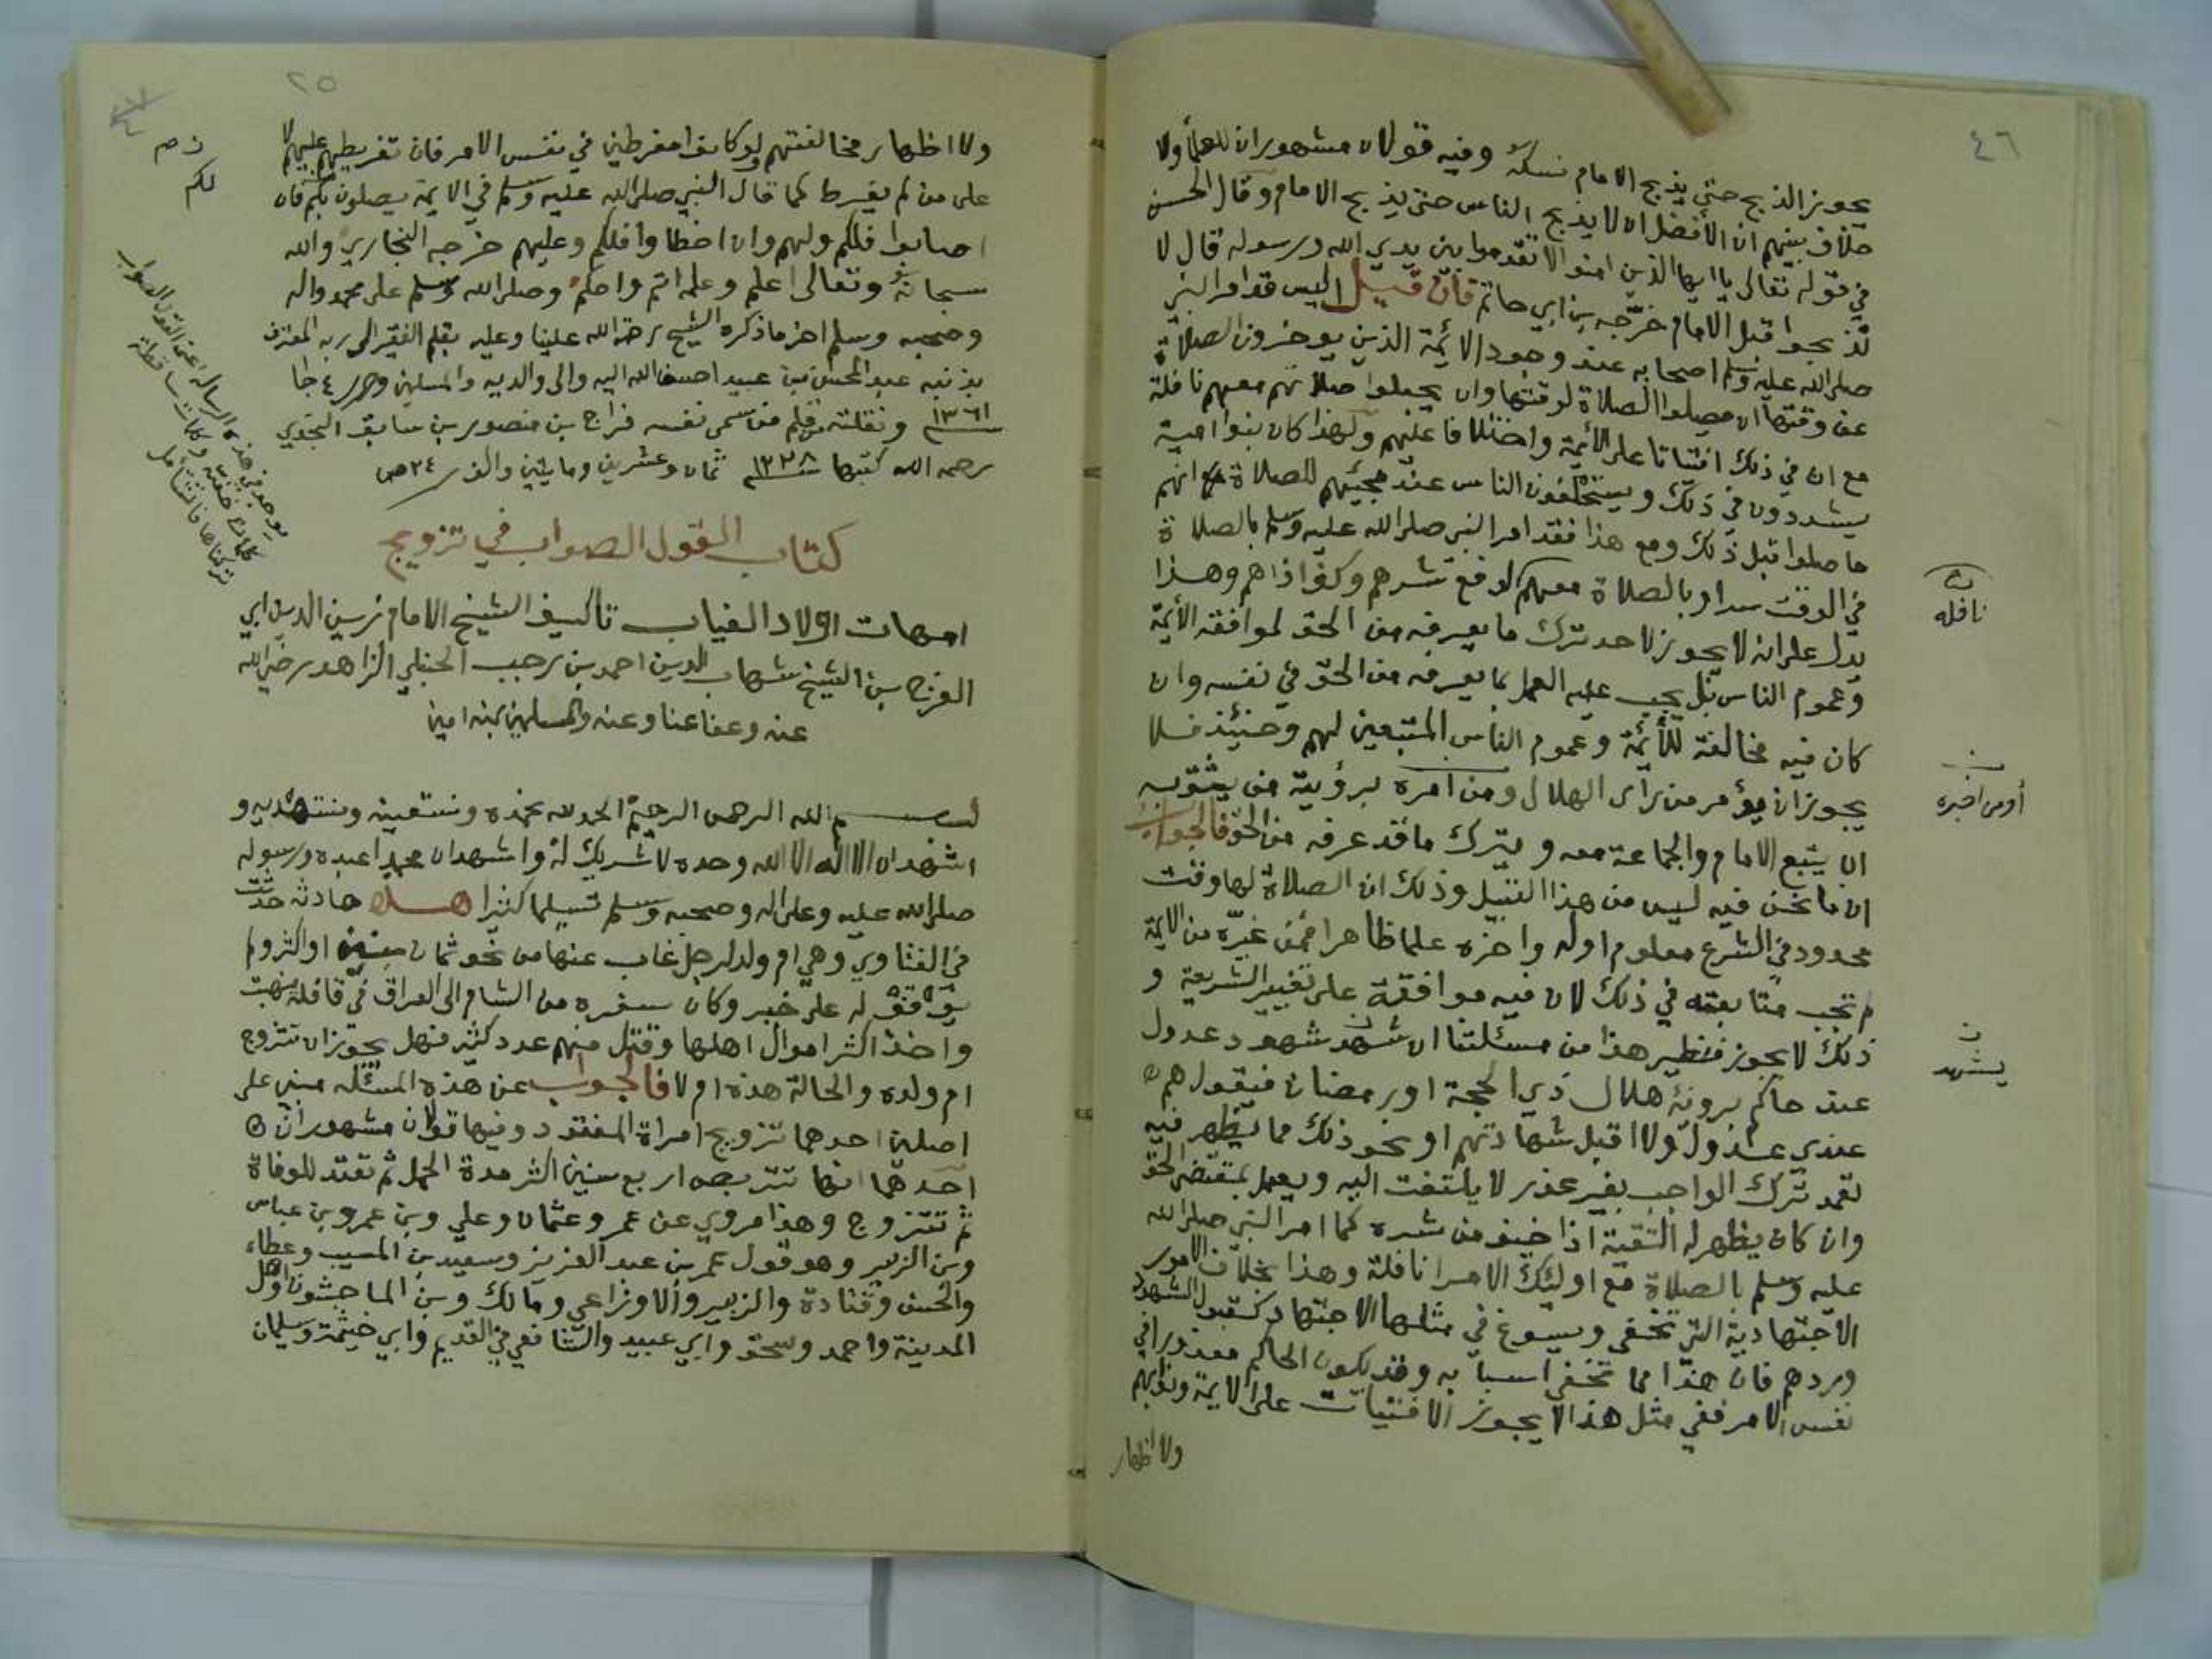 ٤٦
يجوز الذبح حتى يذبح الامام نسكه وفيه قولان مشهوران للعلما ولا
خلاف بينهم ان الأفضل ان لا يذبح الناس حتى يذبح الامام وقال الحسن
في قوله تعالى ياايها الذين امنوا لا تقدموا بين يدي الله ورسوله قال لا
تذبحوا قبل الامام خرّجه بن ابي حاتم فان قيل اليس قد امر النبي
صلى الله عليه وسلم اصحابه عند وجود الائمة الذين يوخرون الصلاة
عن وقتها ان يصلوا الصلاة لوقتها وان يجعلوا صلاتهم معهم نافلة
مع ان في ذلك افتياتا على الأئمة واختلافا عليهم ولهذا كان بنوا امية
يشددون في ذلك ويستحلفون الناس عند مجيئهم للصلاة انهم
ما صلوا قبل ذلك ومع هذا فقد امر النبي صلى الله عليه وسلم بالصلاة
في الوقت سرا وبالصلاة معهم لدفع شرهم وكف اذاهم وهذا
يدل على انه لا يجوز لاحد ترك ما يعرفه من الحق لموافقة الأئمة
وعموم الناس بل يجب عليه العمل بما يعرفه من الحق في نفسه وان
كان فيه مخالفة للأئمة وعموم الناس المتبعين لهم وحنيئذ فلا
يجوز ان يؤمر من رأى الهلال ومن امره برؤية من يثق به
ان يتبع الامام والجماعة معه ويترك ما قد عرفه من الحق فالجواب
ان ما نحن فيه ليس من هذا القبيل وذلك ان الصلاة لها وقت
محدود في الشرع معلوم اوله واخره علما ظاهرا فمن غيّره من الايمة
لم تجب متابعته في ذلك لان فيه موافقة على تغيير الشريعة و
ذلك لا يجوز فنظير هذا من مسئلتنا ان شهد شهود عدول
عند حاكم برؤية هلال ذي الحجة اور رمضان فيقول هم
عندي عدول ولا اقبل شهادتهم او نحو ذلك مما يظهر فيه
تعمد ترك الواجب بغير عذر لا يلتفت اليه ويعمل بمقتضى الحق
وان كان يظهر له التقية اذا خيف من شره كما امر النبي صلى الله
عليه وسلم بالصلاة مع اوليئك الامرا نافلة وهذا بخلاف الامور
الاجتهادية التي تخفى ويسوغ في مثلها الاجتهاد كقبول الشهود
وردهم فان هذا مما تخفى اسبابه وقد يكون الحاكم معذورا في
نفس الامر ففي مثل هذا لا يجوز الافتيات على الايمة ونوابهم
ولا اظهار
نافله
أو من اخبره
يشهد
٢٥
ولا اظهار مخالفتهم ولو كانوا مفرطين في نفس الامر فان تفريطهم عليهم لا
على من لم يفرط كما قال النبي صلى الله عليه وسلم في الايمة يصلون بكم فان
اصابوا فلكم ولهم وان اخطاوا فلكم وعليهم خرجه البخاري والله
سبحانه وتعالى اعلم وعلمه اتم واحكم وصلى الله وسلم على محمد واله
وصحبه وسلم اخر ما ذكره الشيخ رحمة الله علينا وعليه بقلم الفقير الى ربه المعترف
بذنبه عبد المحسن بن عبيد احسن الله اليه والى والديه والمسلمين وحرر ٤ جا
١٣٦١ ونقلته من قلم من سمى نفسه فراج بن منصور بن سابق النجدي
رحمه الله كتبها ١٢٢٨ ثمان وعشرين ومايتين والف ٢٤ ص
كتاب القول الصواب في تزويج
امهات اولاد الغياب تاليف الشيخ الامام زين الدين ابي
الفرج بن الشيخ شهاب الدين احمد بن رجب الحنبلي الزاهد رضي الله
عنه وعفا عنا وعنه والمسلمين بمنه امين
بسم الله الرحمن الرحيم الحمد لله نحمده ونستعينه ونستهديه و
اشهد ان لا اله الا الله وحده لا شريك له واشهد ان محمدا عبده ورسوله
صلى الله عليه وعلى اله وصحبه وسلم تسليما كثيرا هـذه حادثه حدثت
في الفتاوي وهي ام ولد لرجل غاب عنها من نحو ثمان سنين او اكثر ولم
يوقف له على خبر وكان سفره من الشام الى العراق في قافلة نهبت
واخذ اكثر اموال اهلها وقتل منهم عدد كثير فهل يجوز ان تتزوج
ام ولده والحالة هذه ام لا فالجواب عن هذه المسئله مبني على
اصلين احدهما تزويج امراة المفقود وفيها قولان مشهوران
احدهما انها تتربص اربع سنين اكثر مدة الحمل ثم تعتد للوفاة
ثم تتزوج وهذا مروي عن عمر وعثمان وعلي وبن عمر وبن عباس
وبن الزبير وهو قول عمر بن عبد العزيز وسعيد بن المسيب وعطاء
والحسن وقتادة والزبير والاوزاعي ومالك وبن الماجشون واهل
المدينة واحمد وسحق وابي عبيد والشافعي في القديم وابي خيثمة وسليمان
ن ص
لكم
يوجد في هذه الرساله اعني القول الصواب
كلمات خفيه وكلمات ساقطة
تركناها فانتقامل